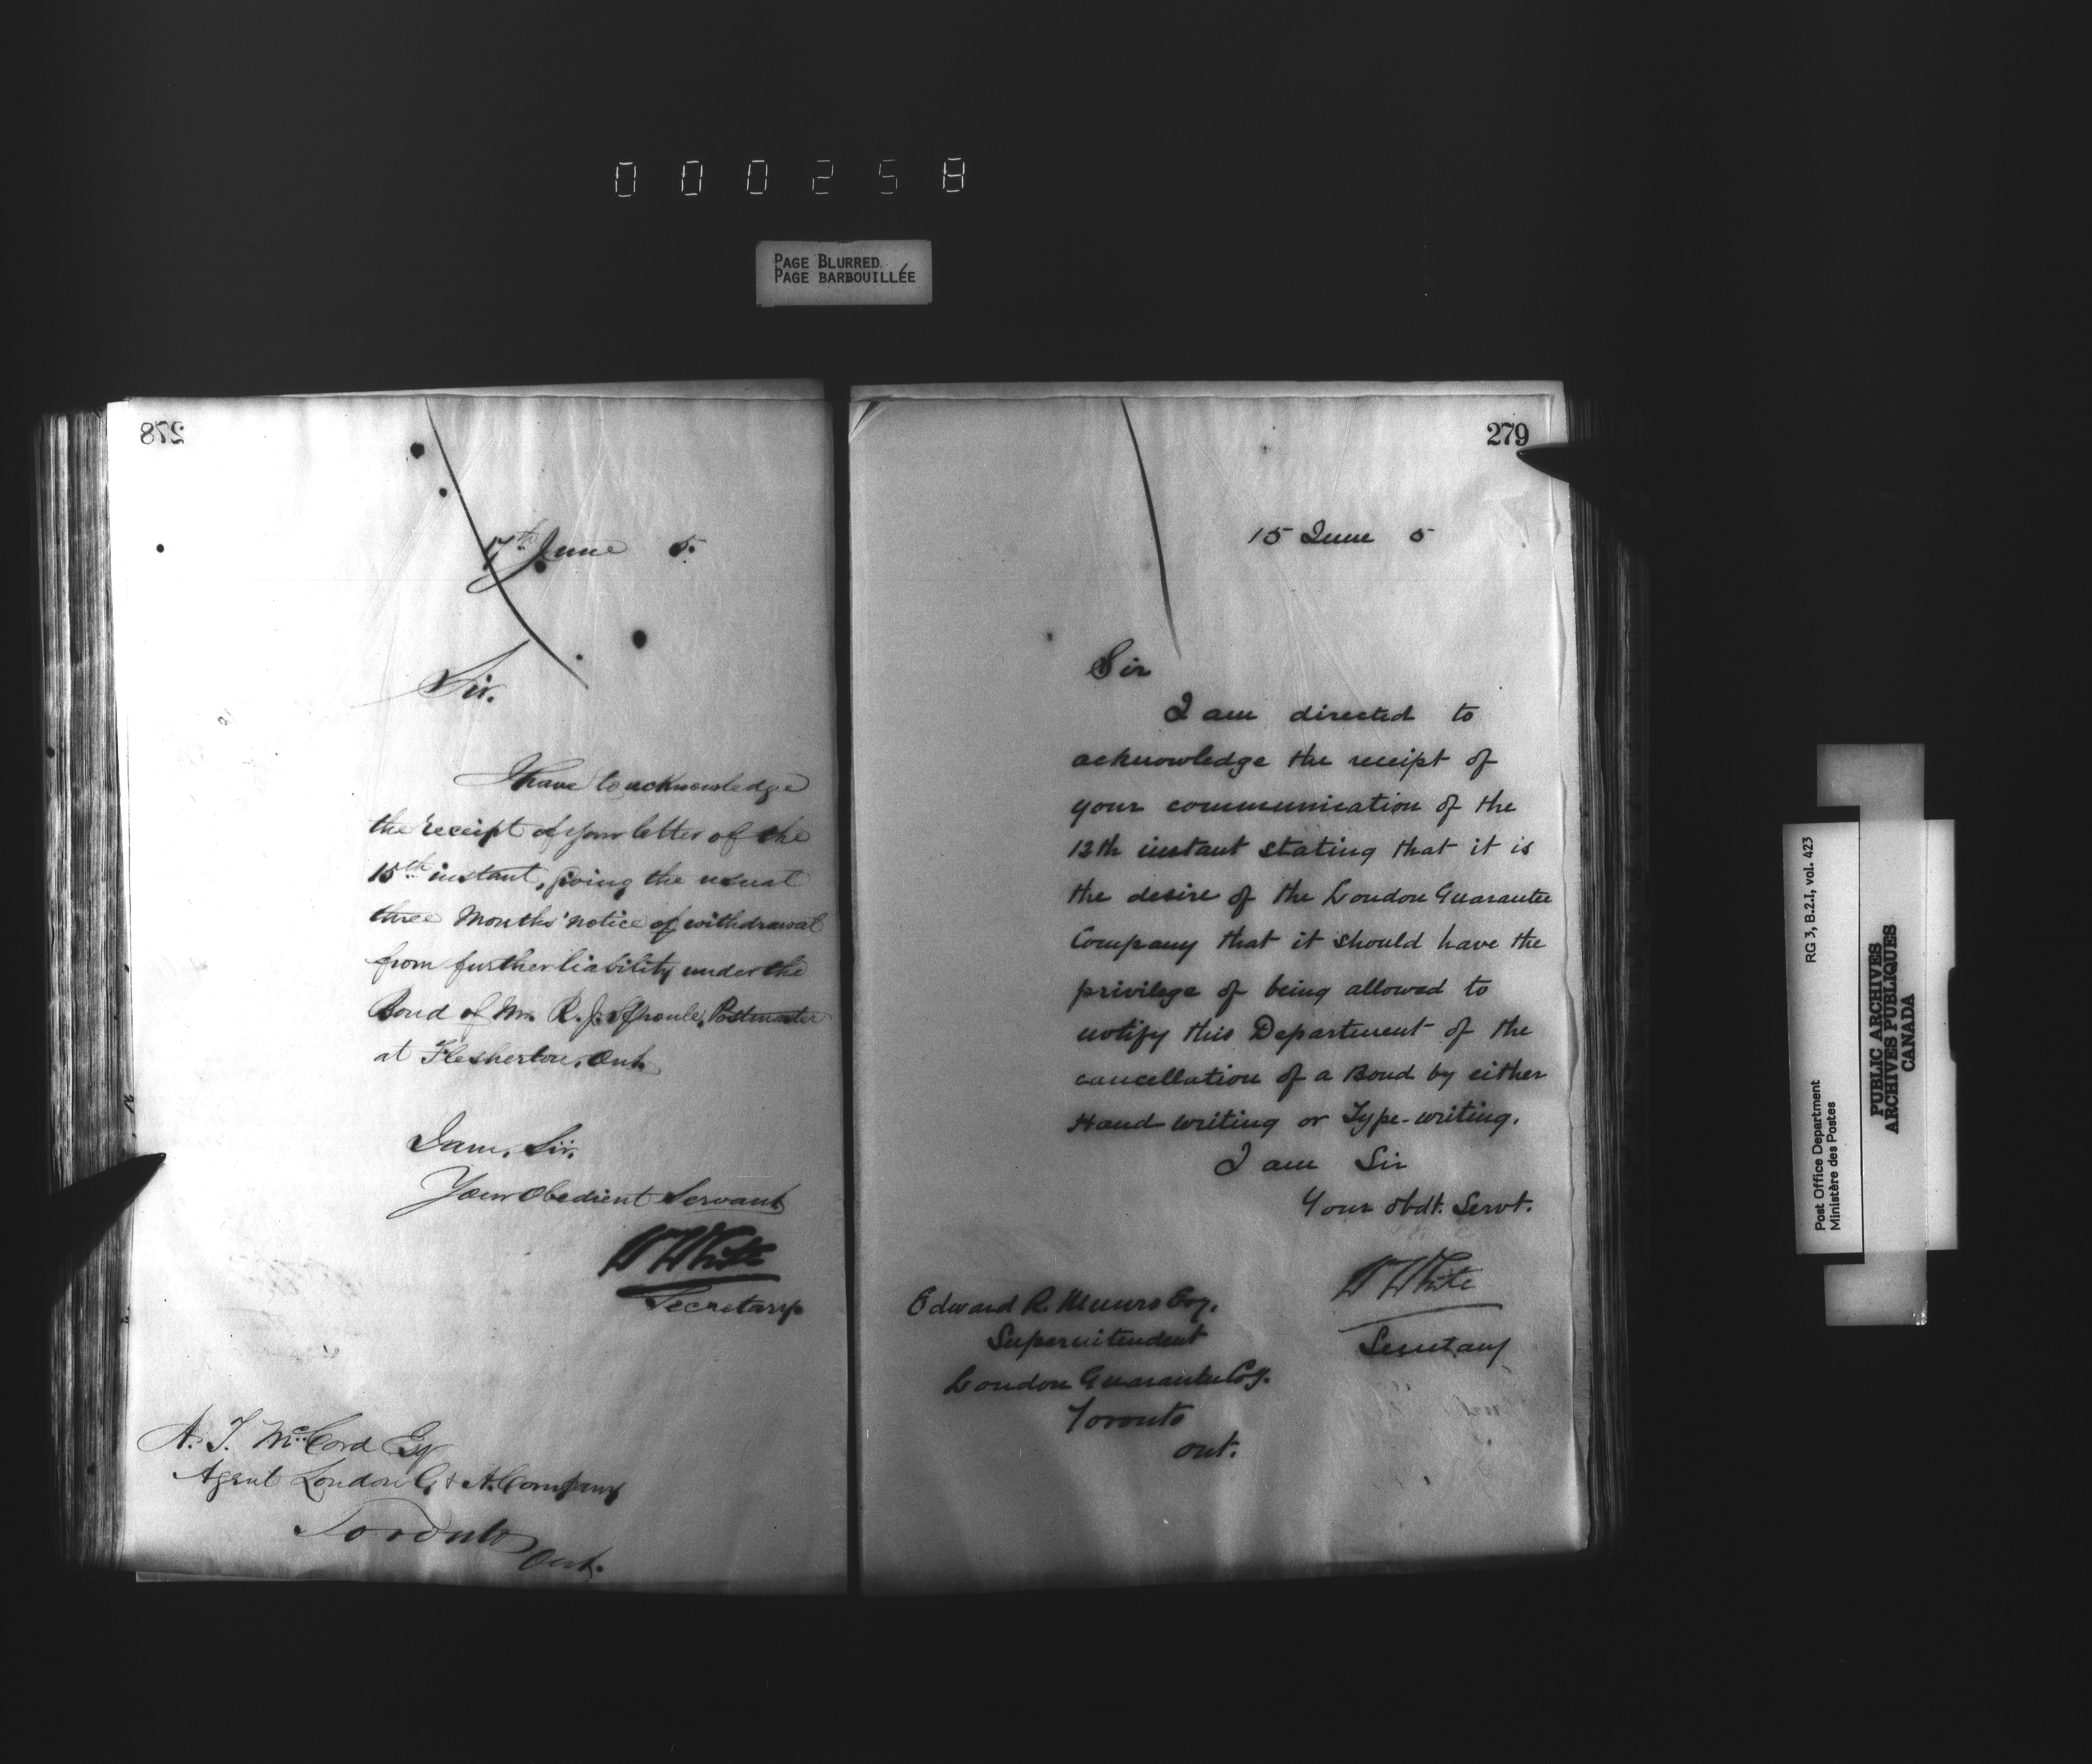 000258
PAGE BLURRED
PAGE BARBOUILLÉE
278
17th June 5.
Sir.
I have to acknowledge
the receipt of your letter of the
15th instant, giving the usual
three Months' notice of withdrawal
from further liability under the
Bond of Mr. R. J. Sproule, Postmaster
at Flesherton, Ont.
I am, Sir.
Your Obedient Servant
W White
Secretary
A. T. McCord Esq
Agent London G. & A. Company
Toronto
Ont.
279
15 June 5
Sir
I am directed to
acknowledge the receipt of
your communication of the
12th instant stating that it is
the desire of the London Guarantee
Company that it should have the
privilege of being allowed to
notify this Department of the
cancellation of a Bond by either
Hand-writing or Type-writing.
I am Sir
Your obdt. Servt.
W White
Secretary
Edward R. Munro Esq.
Superintendent
London Guarantee Coy.
Toronto
Ont.
RG 3, B.2.I, vol. 423
Post Office Department
Ministère des Postes
PUBLIC ARCHIVES
ARCHIVES PUBLIQUES
CANADA